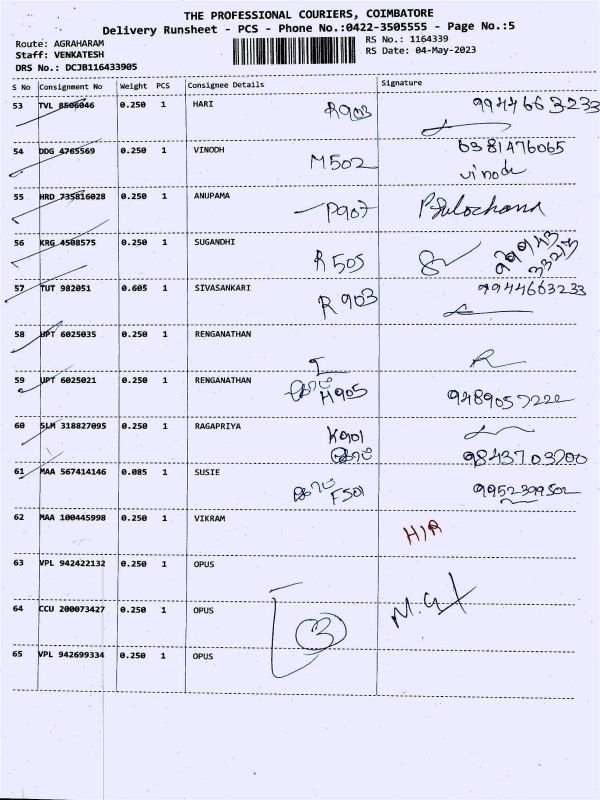 THE PROFESSIONAL COURIERS, COIMBATORE
Delivery Runsheet - PCS - Phone No.:0422-3505555 - Page No.:5
Route: AGRAHARAM RS No.: 1164339
Staff: VENKATESH RS Date: 04-May-2023
DRS No.: DCJB116433905
S No Consignment No Weight PCS Consignee Details Signature
53 TVL 8506046 0.250 1 HARI R903 9944663233
54 DDG 4765569 0.250 1 VINODH M502 6381476065
vinodh
55 HRD 735816028 0.250 1 ANUPAMA P907
56 KRG 4508575 0.250 1 SUGANDHI R505
57 TUT 982051 0.605 1 SIVASANKARI R903 9944663233
58 UPT 6025035 0.250 1 RENGANATHAN
59 UPT 6025021 0.250 1 RENGANATHAN H905 9489057222
60 SLM 318827095 0.250 1 RAGAPRIYA K901
9843703200
61 MAA 567414146 0.085 1 SUSIE F501 9952399502
62 MAA 100445998 0.250 1 VIKRAM H/R
63 VPL 942422132 0.250 1 OPUS
64 CCU 200073427 0.250 1 OPUS 3
65 VPL 942699334 0.250 1 OPUS